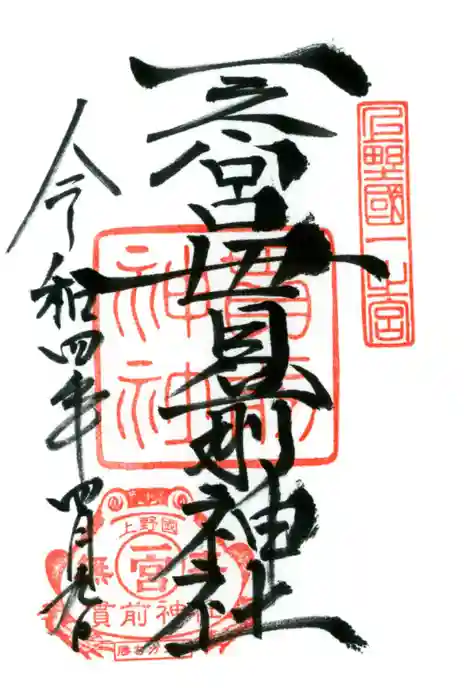 上野國一之宮
一之宮貫前神社
貫前神社
令和四年四月九日
上野國
一宮
無
貫前神社